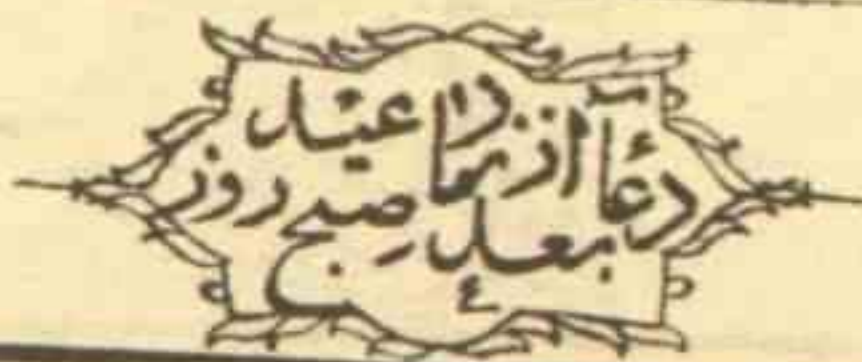 دعآ بعد از نماز صبح روز عید